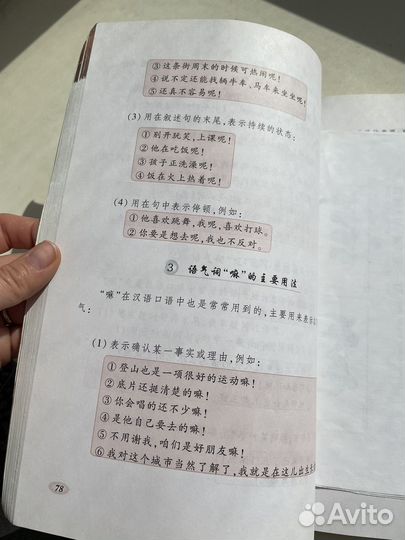 ③ 这条街周末的时候可热闹呢！
④ 说不定还能找辆牛车、马车来坐坐呢！
⑤ 还真不容易呢！
(3) 用在叙述句的末尾，表示持续的状态：
① 别开玩笑，上课呢！
② 他在吃饭呢！
③ 孩子正洗澡呢！
④ 饭在火上热着呢！
(4) 用在句中表示停顿，例如：
① 他喜欢跳舞，我呢，喜欢打球。
② 你要是想去呢，我也不反对。
3 语气词“嘛”的主要用法
“嘛”在汉语口语中也是常常用到的，主要用来表示
气：
(1) 表示确认某一事实或理由，例如：
① 登山也是一项很好的运动嘛！
② 底片还挺清楚的嘛！
③ 你会唱的还不少嘛！
④ 是他自己要去的嘛！
⑤ 不用谢我，咱们是好朋友嘛！
⑥ 我对这个城市当然了解了，我就是在这儿出生
78
Avito